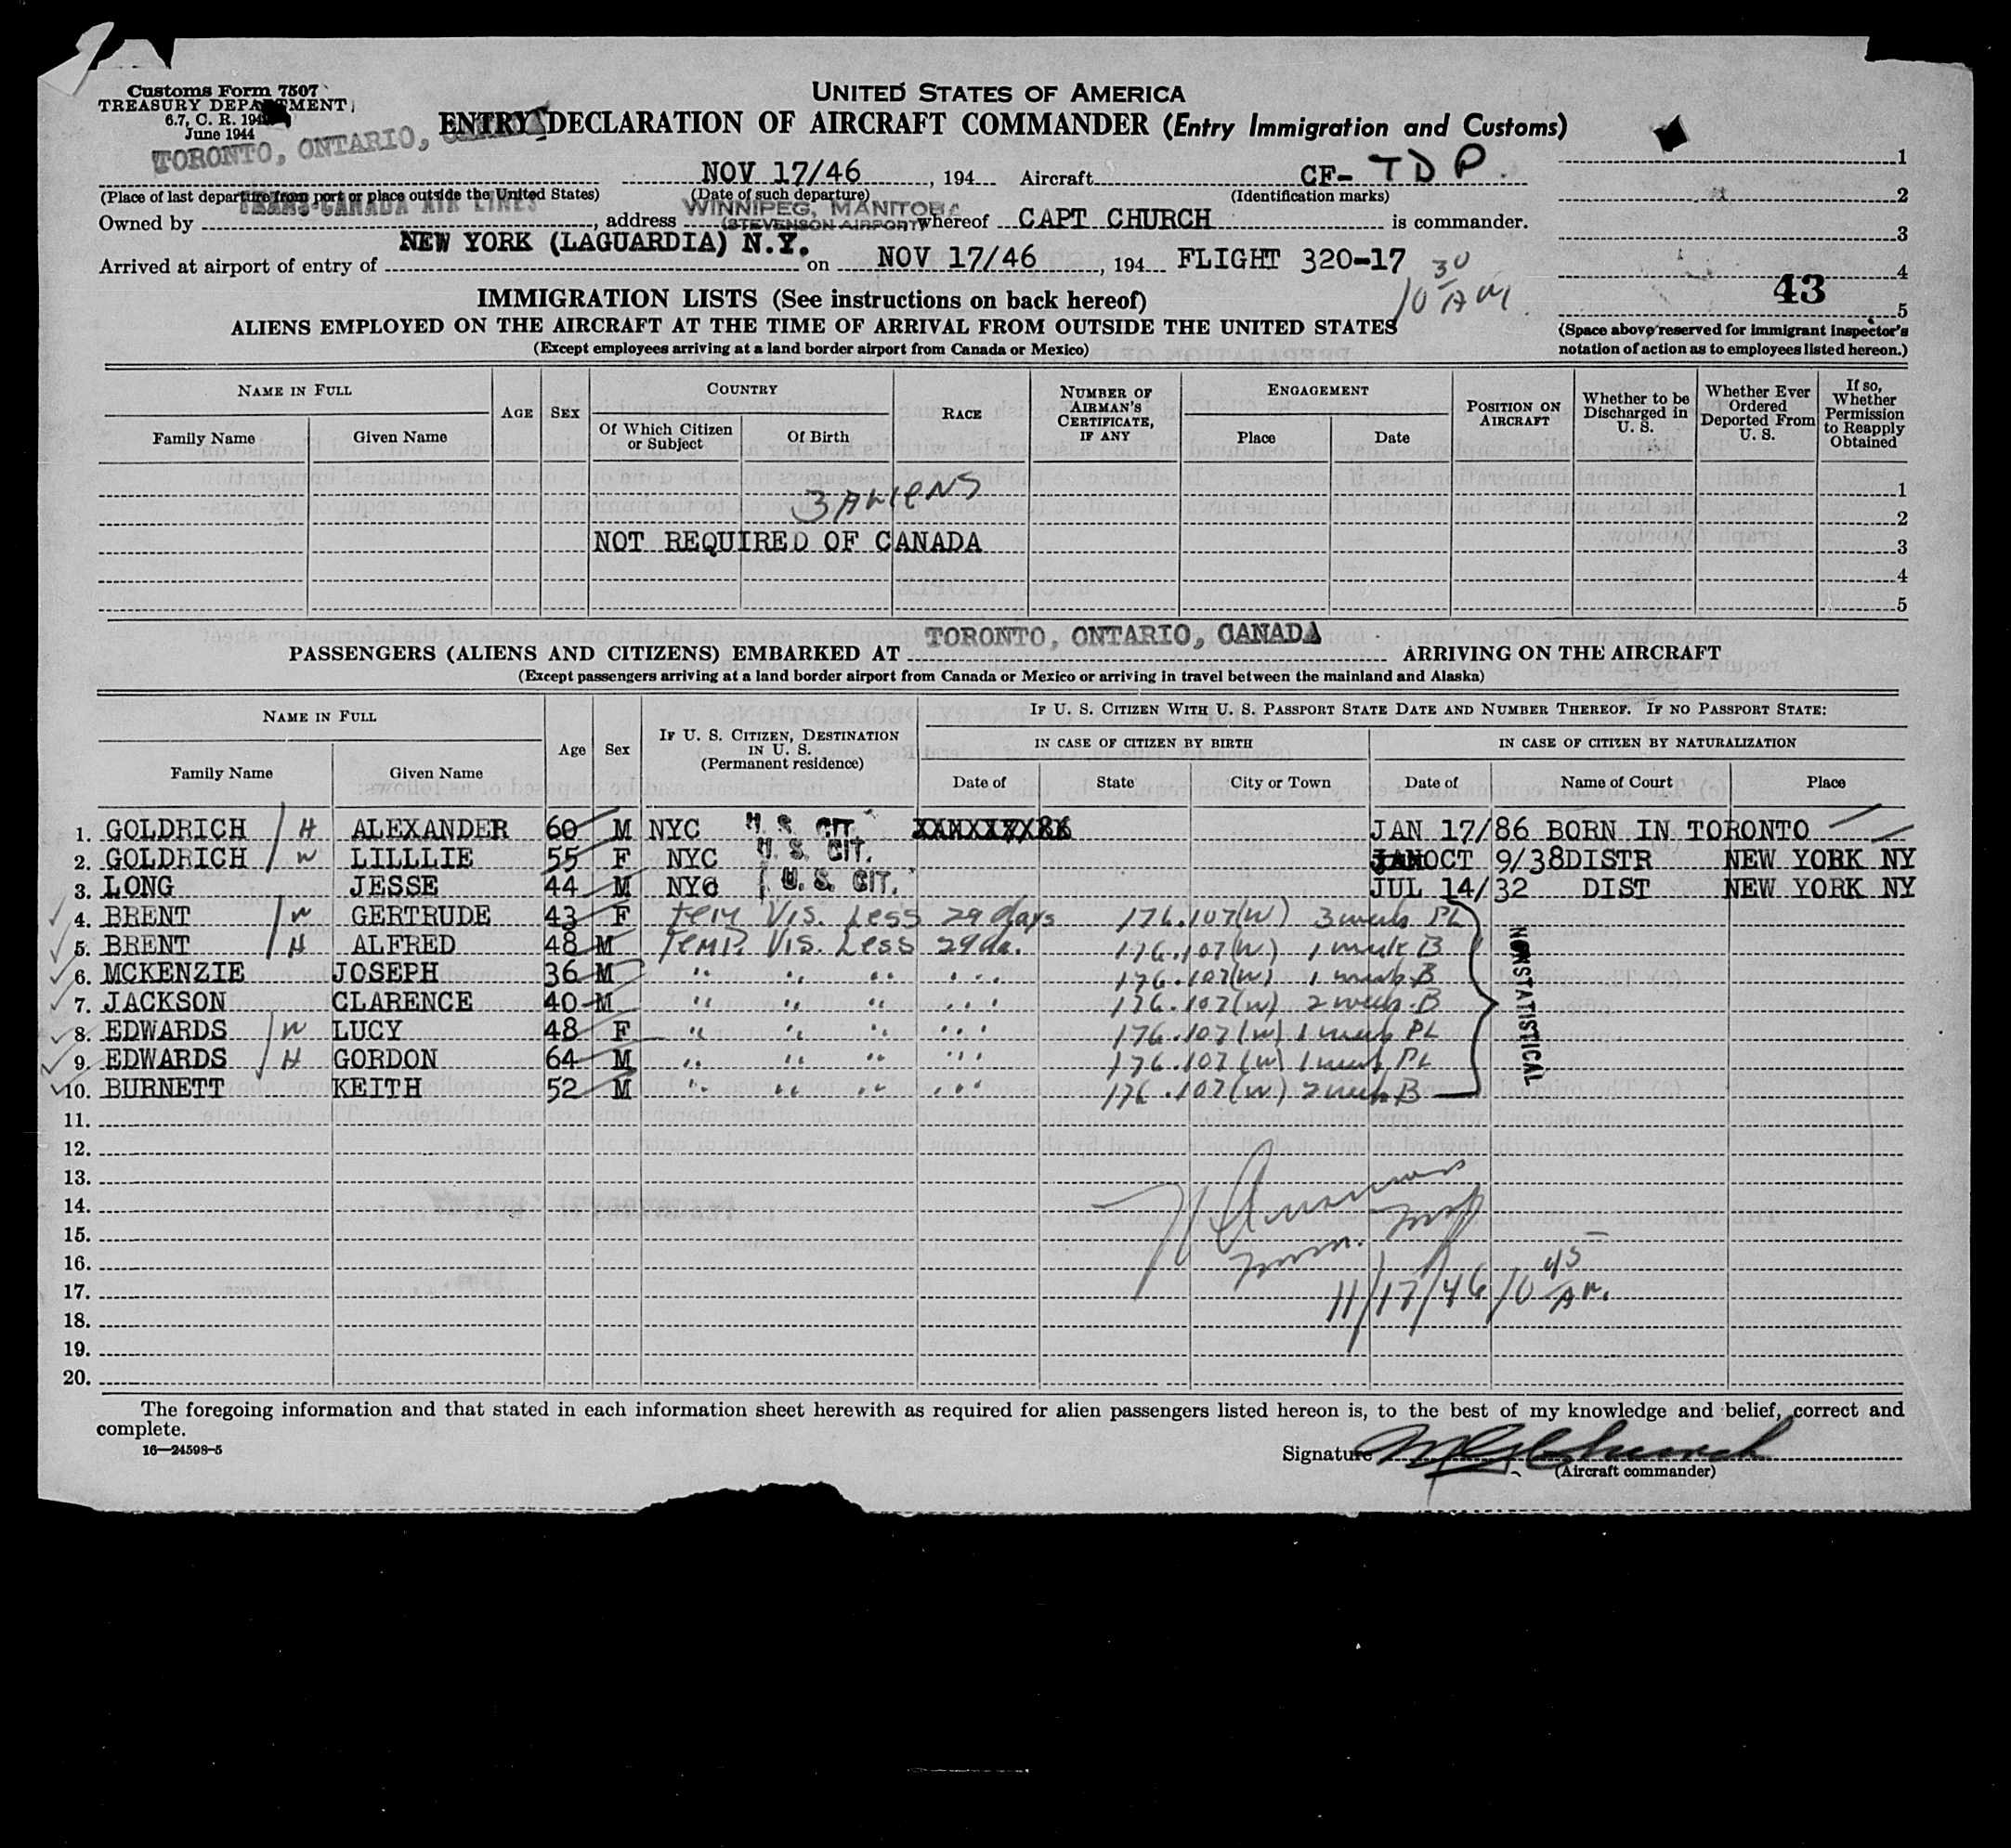 Customs Form 7507
TREASURY DEPARTMENT
6.7, C. R. 194
June 1944
UNITED STATES OF AMERICA
ENTRY DECLARATION OF AIRCRAFT COMMANDER (Entry Immigration and Customs)
TORONTO, ONTARIO, CANADA
NOV 17/46, 194 Aircraft CF-TDP.
(Place of last departure from port or place outside the United States) (Date of such departure) (Identification marks)
TRANS-CANADA AIR LINES WINNIPEG, MANITOBA
Owned by , address (STEVENSON AIRPORT) whereof CAPT CHURCH is commander.
NEW YORK (LAGUARDIA) N.Y.
Arrived at airport of entry of on NOV 17/46, 194 FLIGHT 320-17
10 30 AM
1
2
3
4
43
5
(Space above reserved for immigrant inspector's notation of action as to employees listed hereon.)
IMMIGRATION LISTS (See instructions on back hereof)
ALIENS EMPLOYED ON THE AIRCRAFT AT THE TIME OF ARRIVAL FROM OUTSIDE THE UNITED STATES
(Except employees arriving at a land border airport from Canada or Mexico)
NAME IN FULL AGE SEX COUNTRY RACE NUMBER OF AIRMAN'S CERTIFICATE, IF ANY ENGAGEMENT POSITION ON AIRCRAFT Whether to be Discharged in U. S. Whether Ever Ordered Deported From U. S. If so, Whether Permission to Reapply Obtained
Family Name Given Name Of Which Citizen or Subject Of Birth Place Date
3 ALIENS 1
2
NOT REQUIRED OF CANADA 3
4
5
TORONTO, ONTARIO, CANADA
PASSENGERS (ALIENS AND CITIZENS) EMBARKED AT ARRIVING ON THE AIRCRAFT
(Except passengers arriving at a land border airport from Canada or Mexico or arriving in travel between the mainland and Alaska)
NAME IN FULL Age Sex IF U. S. CITIZEN, DESTINATION IN U. S. (Permanent residence) IF U. S. CITIZEN WITH U. S. PASSPORT STATE DATE AND NUMBER THEREOF. IF NO PASSPORT STATE:
IN CASE OF CITIZEN BY BIRTH IN CASE OF CITIZEN BY NATURALIZATION
Family Name Given Name Date of State City or Town Date of Name of Court Place
1. GOLDRICH H ALEXANDER 60 M NYC U. S. CIT. JAN 17/86 BORN IN TORONTO
2. GOLDRICH W LILLLIE 55 F NYC U. S. CIT. OCT 9/38 DISTR NEW YORK NY
3. LONG JESSE 44 M NYC U. S. CIT. JUL 14/32 DIST NEW YORK NY
4. BRENT W GERTRUDE 43 F Tem Vis. Less 29 days 176.107(W) 3 weeks PL
5. BRENT H ALFRED 48 M Temp. Vis. Less 29 da. 176.107(W) 1 week B
6. MCKENZIE JOSEPH 36 M " " " " 176.107(W) 1 week B
7. JACKSON CLARENCE 40 M " " " " 176.107(W) 2 weeks B
8. EDWARDS W LUCY 48 F " " " " 176.107(W) 1 week PL
9. EDWARDS H GORDON 64 M " " " " 176.107(W) 1 week PL
10. BURNETT KEITH 52 M " " " " 176.107(W) 2 weeks B
NONSTATISTICAL
11.
12.
13.
14.
15.
16.
17. 11/17/46 10 45 AM.
18.
19.
20.
The foregoing information and that stated in each information sheet herewith as required for alien passengers listed hereon is, to the best of my knowledge and belief, correct and
complete.
16—24598-5
Signature Church
(Aircraft commander)